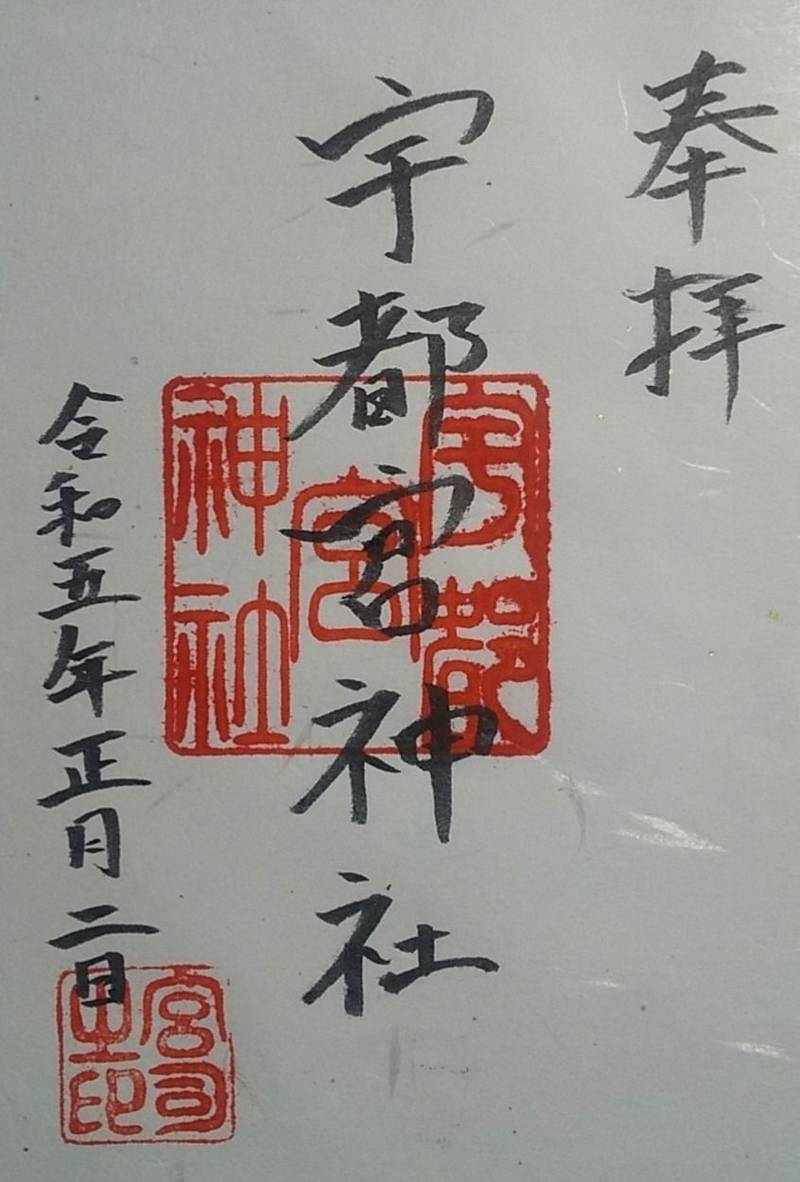 奉拝
宇都宮神社
令和五年正月二日
宇都
宮
神社
宮司
之印